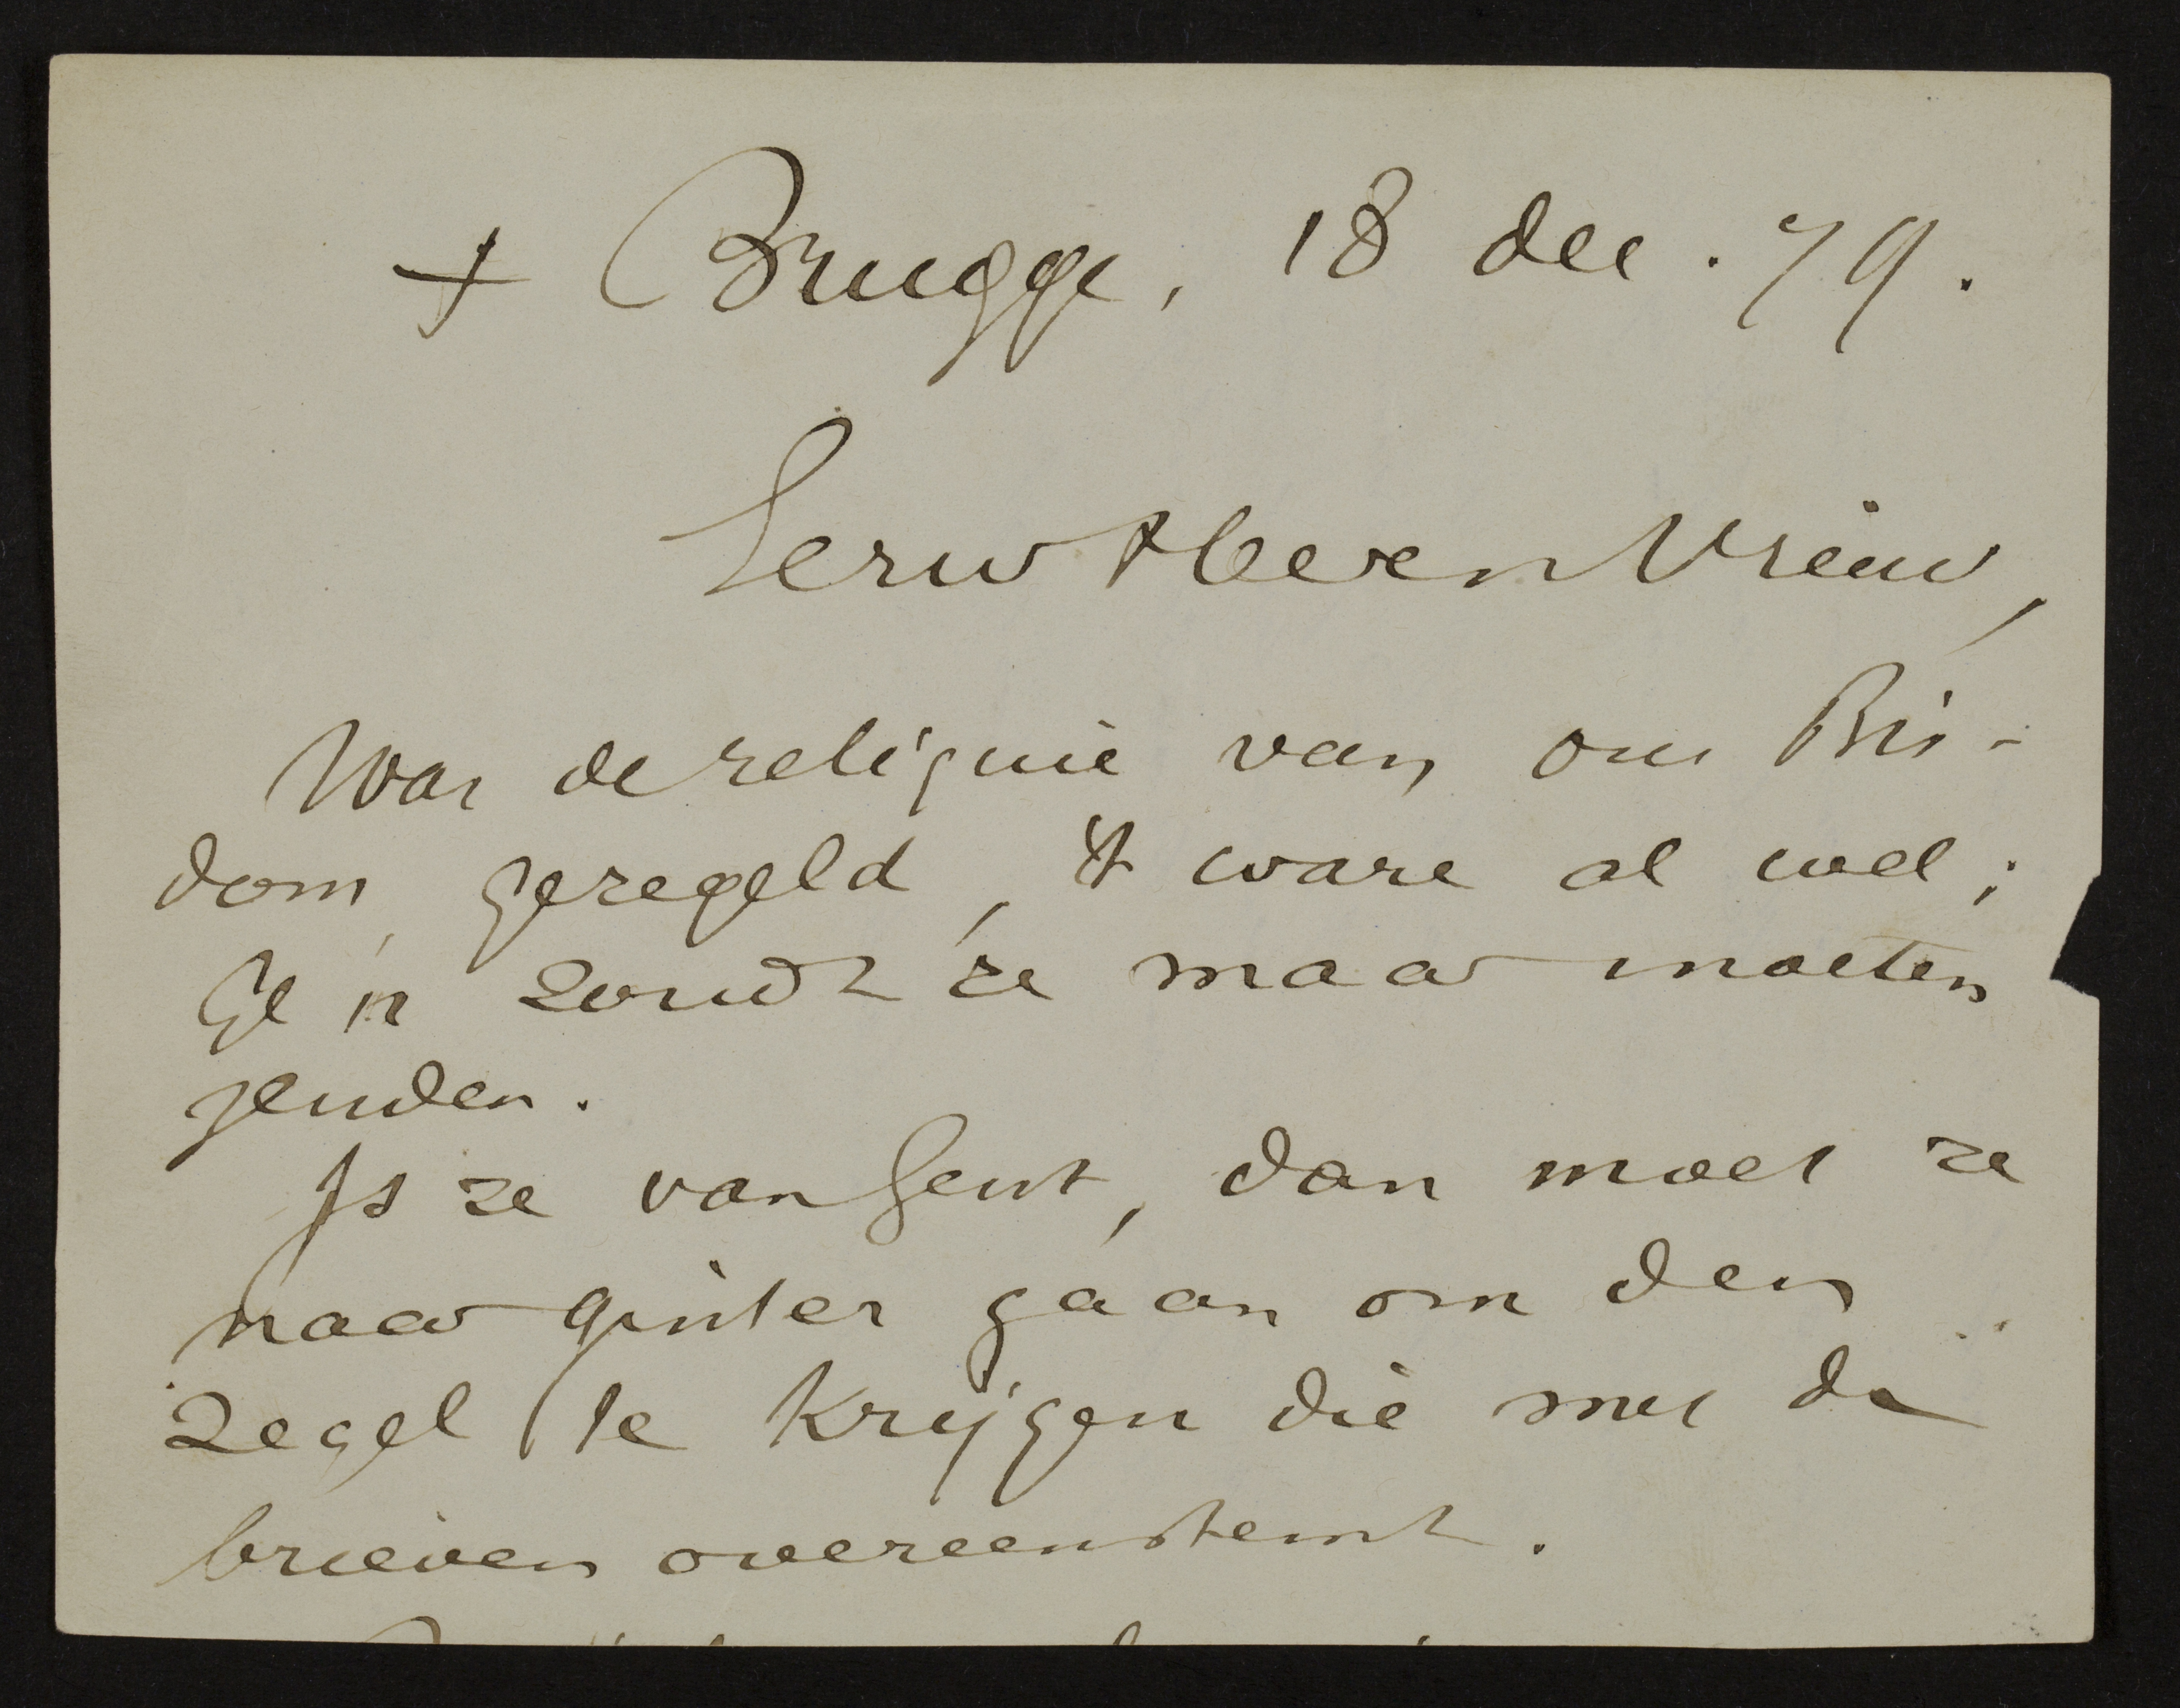 + Brugge, 18 dec. 79.
Eerw Heer en Vriend,
War de reliquie van ons Bis-
dom, geregeld, 't ware al wel;
Ge 'n zoudt ze maar moeten
zenden.
Is ze van Gent, dan moet ze
naar ginter gaan om den
zegel te krijgen die met de
brieven overeenstemt.